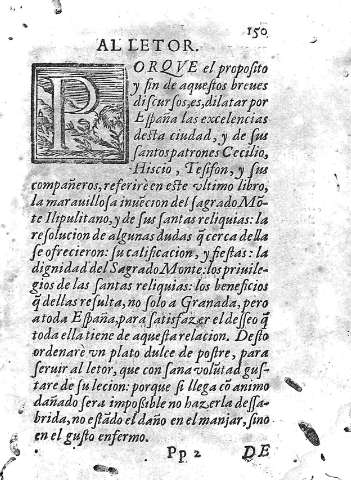 150
AL LETOR.
PORQVE el proposito
y fin de aquestos breues
discursos, es, dilatar por
España las excelencias
desta ciudad, y de sus
santos patrones Cecilio,
Hiscio, Tesifon, y sus
compañeros, referirè en este vltimo libro,
la marauillosa inuẽcion del sagrado Mõ-
te Ilipulitano, y de sus santas reliquias: la
resolucion de algunas dudas q̃ cerca della
se ofrecieron: su calificacion, y fiestas: la
dignidad del Sagrado Monte: los priuile-
gios de las santas reliquias: los beneficios
q̃ dellas resulta, no solo a Granada, pero
a toda España, para satisfazer el desseo q̃
toda ella tiene de aquesta relacion. Desto
ordenarè vn plato dulce de postre, para
seruir al letor, que con sana volũtad gus-
tare de su lecion: porque si llega cõ animo
dañado sera impossible no hazerla dessa-
brida, no estãdo el daño en el manjar, sino
en el gusto enfermo.
Pp 2 DE